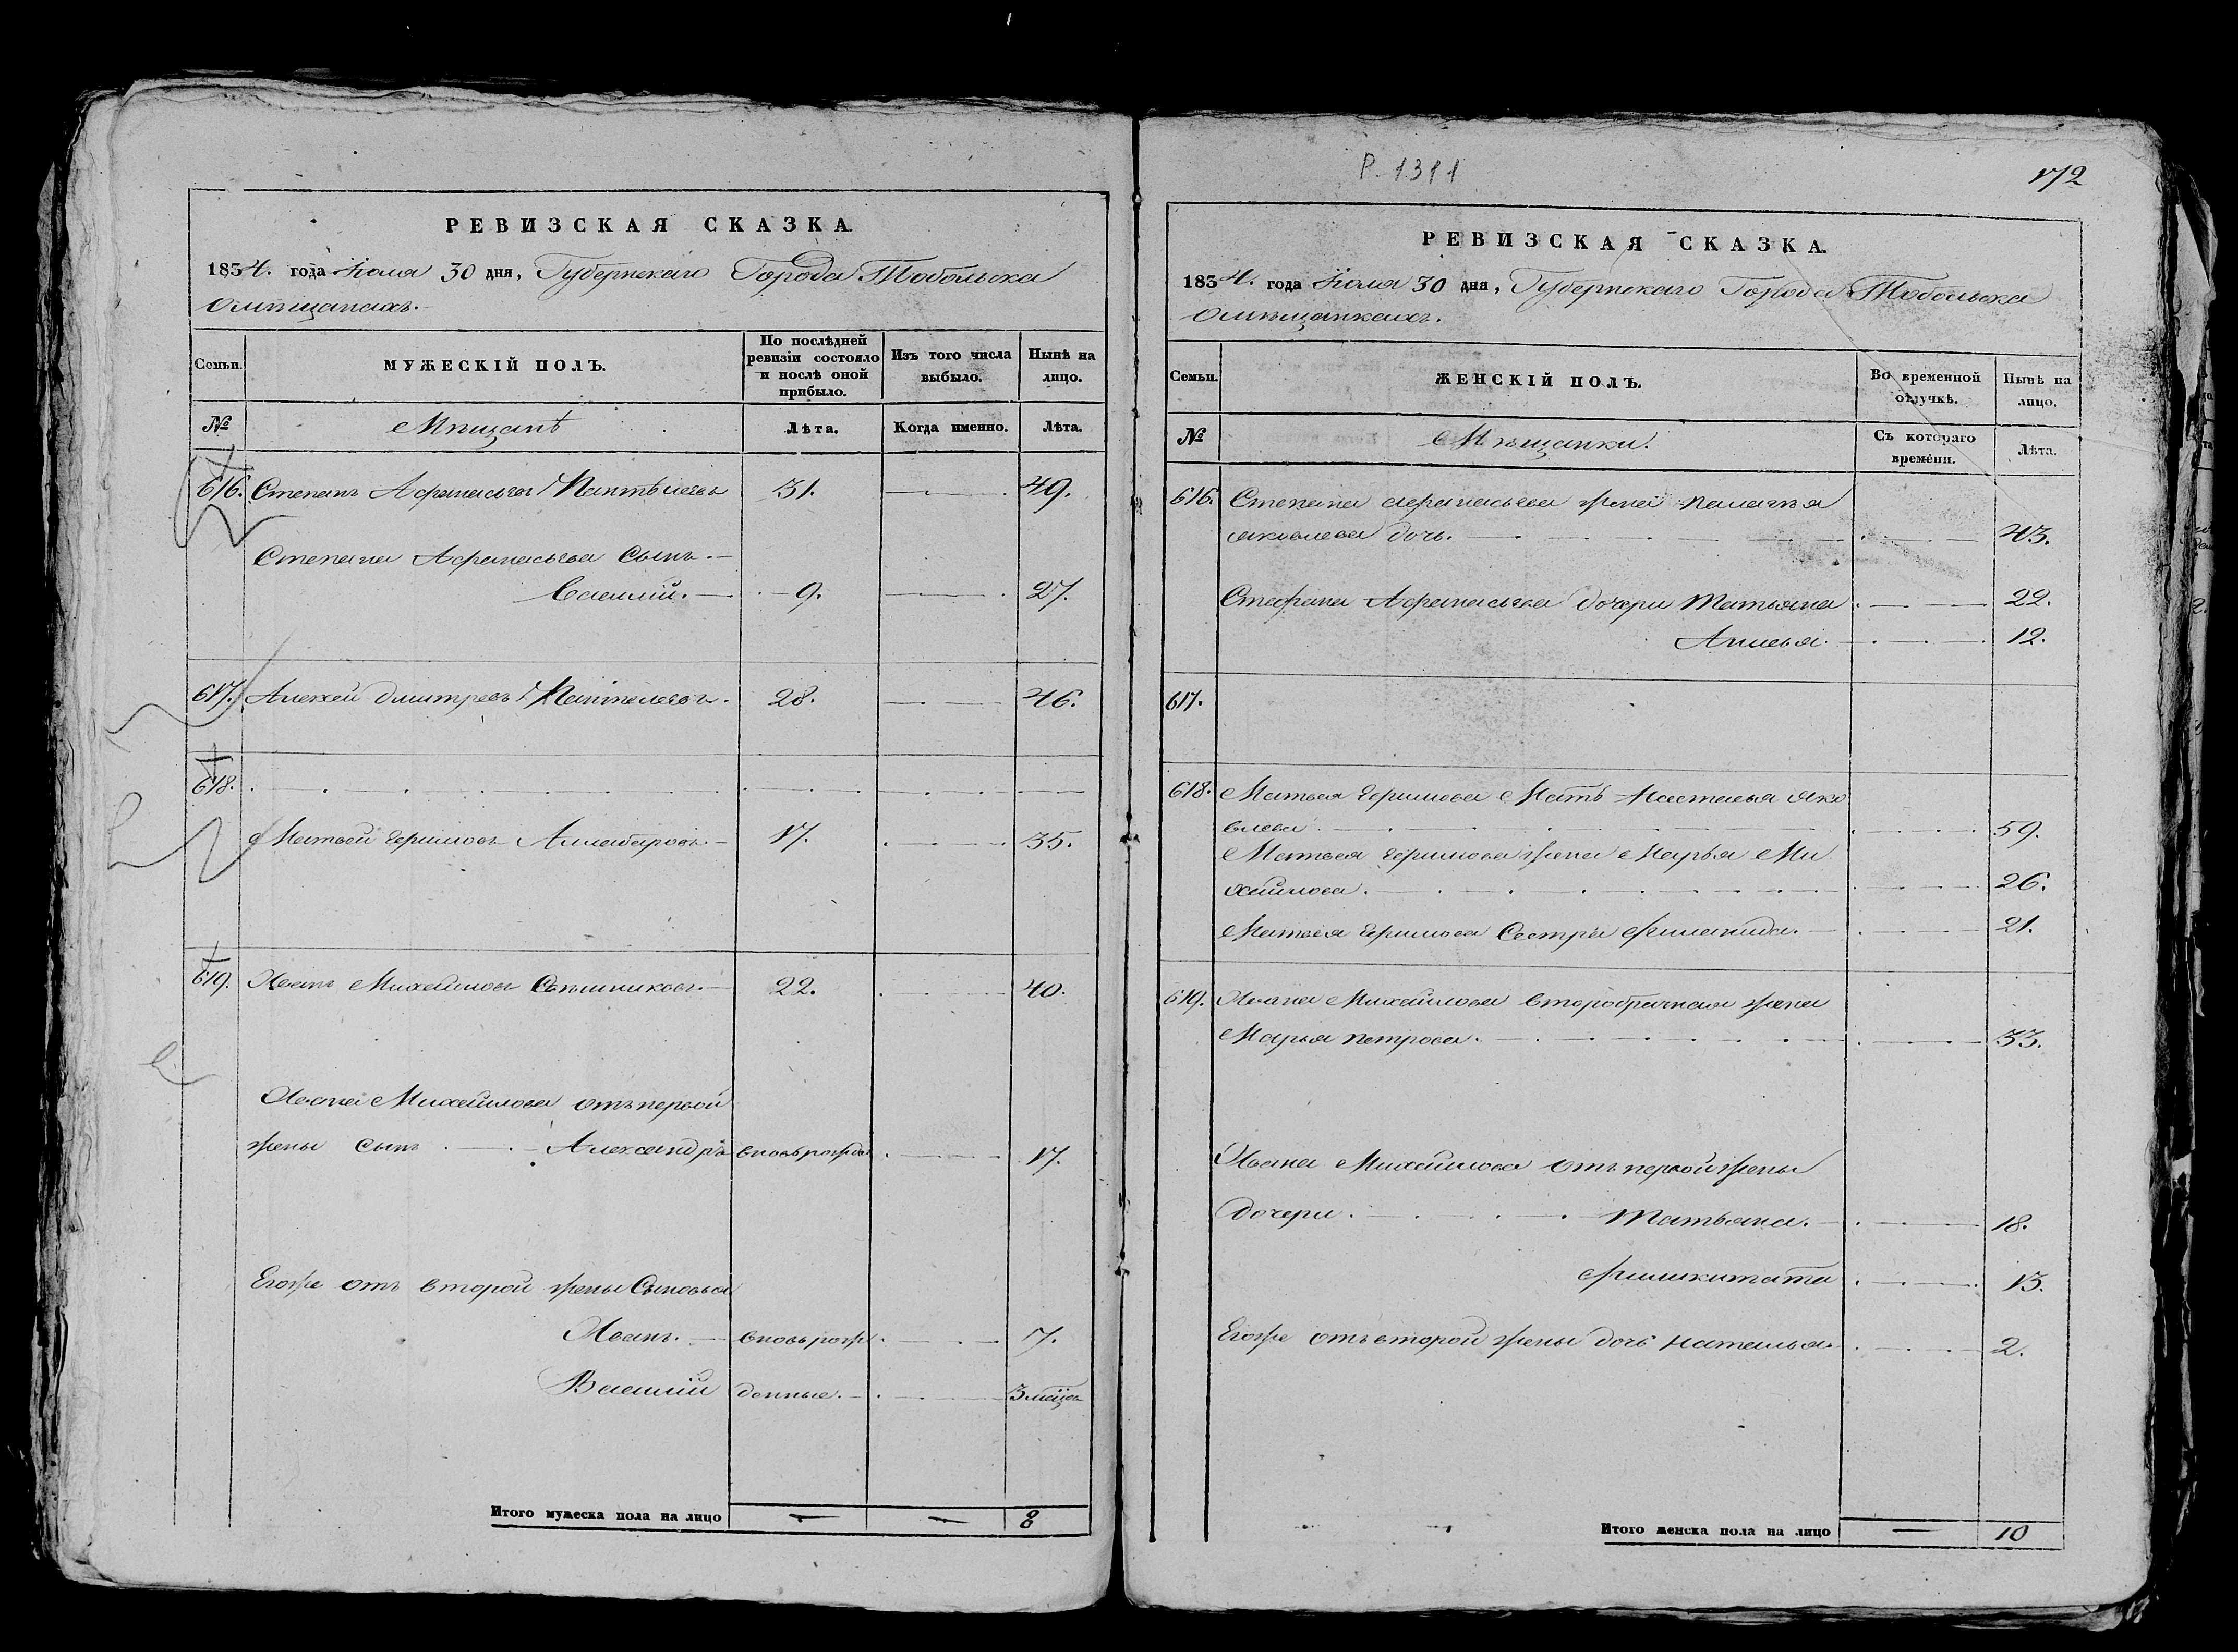 РЕВИЗСКАЯ СКАЗКА.
1854. года Іюля 30 дня, Губернскаго Города Тобольска
омѣщанахъ.
Семьи. МУЖЕСКІЙ ПОЛЪ. По послѣдней ревизіи состояло и послѣ оной прибыло. Изъ того числа выбыло. Нынѣ на лицо.
№ Мѣщанѣ Лѣта. Когда именно. Лѣта.
616. Степанъ Афанасьевъ Пантѣлеевъ 31. 49.
Степана Афанасьева Сынъ.
Василій. 9. 27.
617. Алексей Дмитревъ Пантелеевъ. 28. 46.
618.
Матвей Ефимовъ 17. 35.
619. Иванъ Михайловъ 22. 40.
Ивана Михайлова отъ первой
жены сынъ Александръ вновь рожде 17.
Егоже отъ второй жены Сыновья
Иванъ. вновь рож 7.
Василій денные. 3 мѣцъ
Итого мужеска пола на лицо 8
Р-1311
172
РЕВИЗСКАЯ СКАЗКА.
1854. года Іюля 30 дня, Губернскаго Города Тобольска
омѣщанкахъ.
Семьи. ЖЕНСКІЙ ПОЛЪ. Во временной отлучкѣ. Нынѣ на лицо.
№ Мѣщанки. Съ котораго времени. Лѣта.
616. Степана афанасьева жена палагѣя
яковлева дочь. 43.
Стефана Афанасьева дочери Татьяна 22.
12.
617.
618. Матвея Ефимова Мать Настасья Яко
влева. 59.
Матвея Ефимова жена Марья Ми
хайлова. 26.
Матвея Ефимова Сестра 21.
619. Ивана Михайлова второбрачная жена
Марья петрова. 33.
Ивана Михайлова отъ первой жены
Дочери. Татьяна. 18.
13.
Егоже отъ второй жены дочь наталья. 2.
Итого женска пола на лицо 10